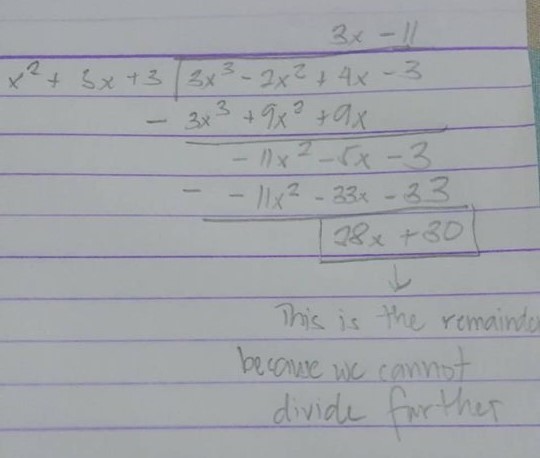 3x - 11
x² + 3x + 3 3x³ - 2x² + 4x - 3
- 3x³ + 9x² + 9x
- 11x² - 5x - 3
- - 11x² - 33x - 33
28x + 30
↓
This is the remainde
because we cannot
divide further